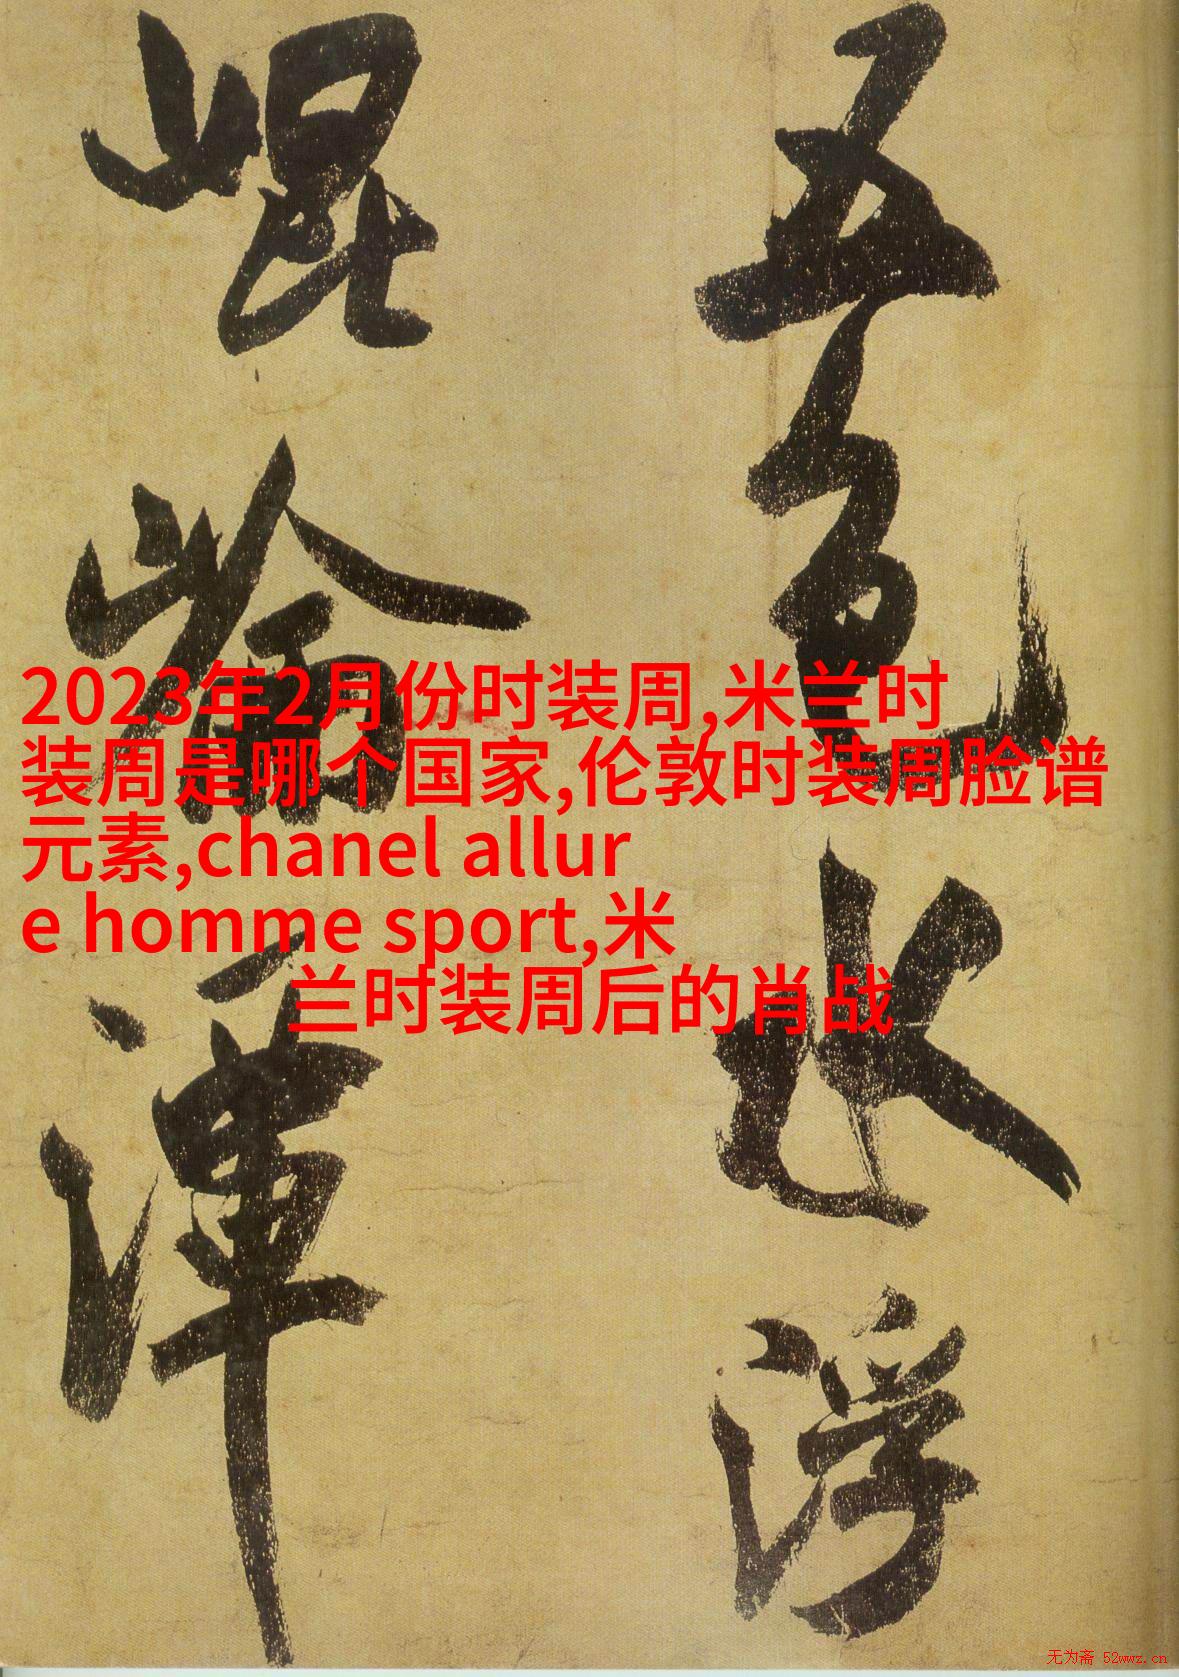 五色水浮
崐崘渾
2023年2月份时装周,米兰时
装周是哪个国家,伦敦时装周脸谱
元素,chanel allur
e homme sport,米
兰时装周后的肖战
无为斋 52wwz.cn